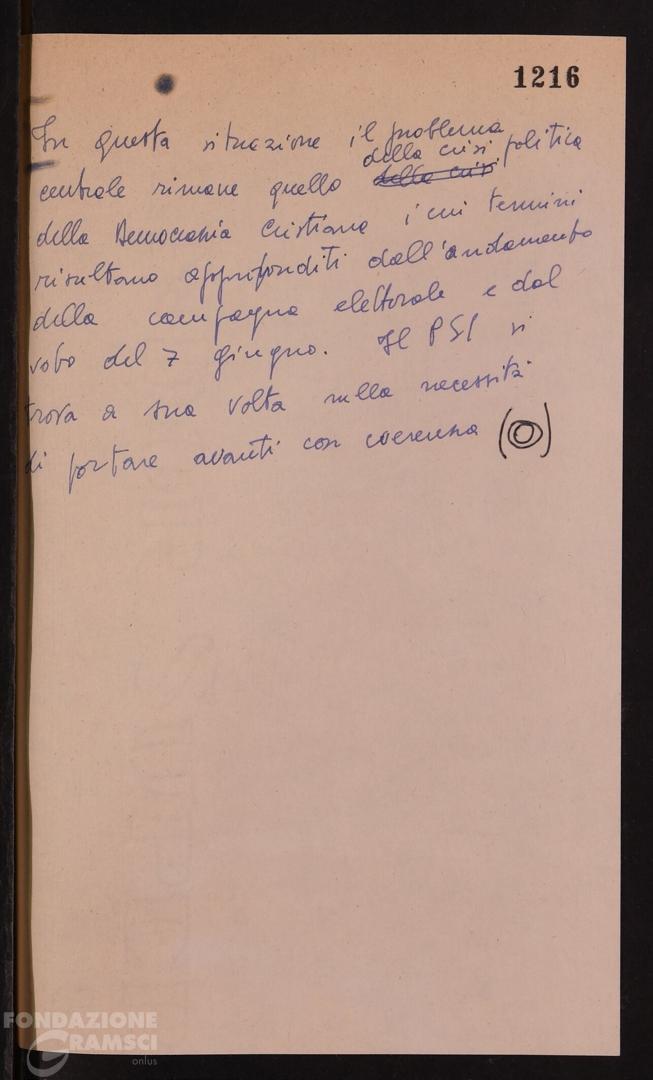 1216
In questa situazione il problema
centrale rimane quello della crisi politica
della crisi
della Democrazia Cristiana i cui termini
risultano approfonditi dall'andamento
della campagna elettorale e dal
voto del 7 giugno. Il PSI si
trova a sua volta nella necessità
di portare avanti con coerenza
FONDAZIONE
GRAMSCI
onlus